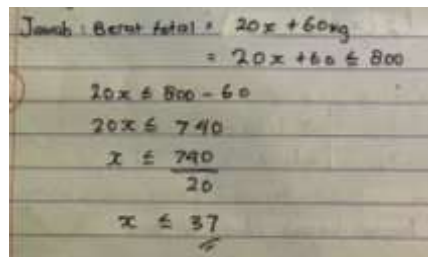 Jawab : Berat total = 20x + 60kg
= 20x + 60 ≤ 800
20x ≤ 800 - 60
20x ≤ 740
x ≤ 740
20
x ≤ 37